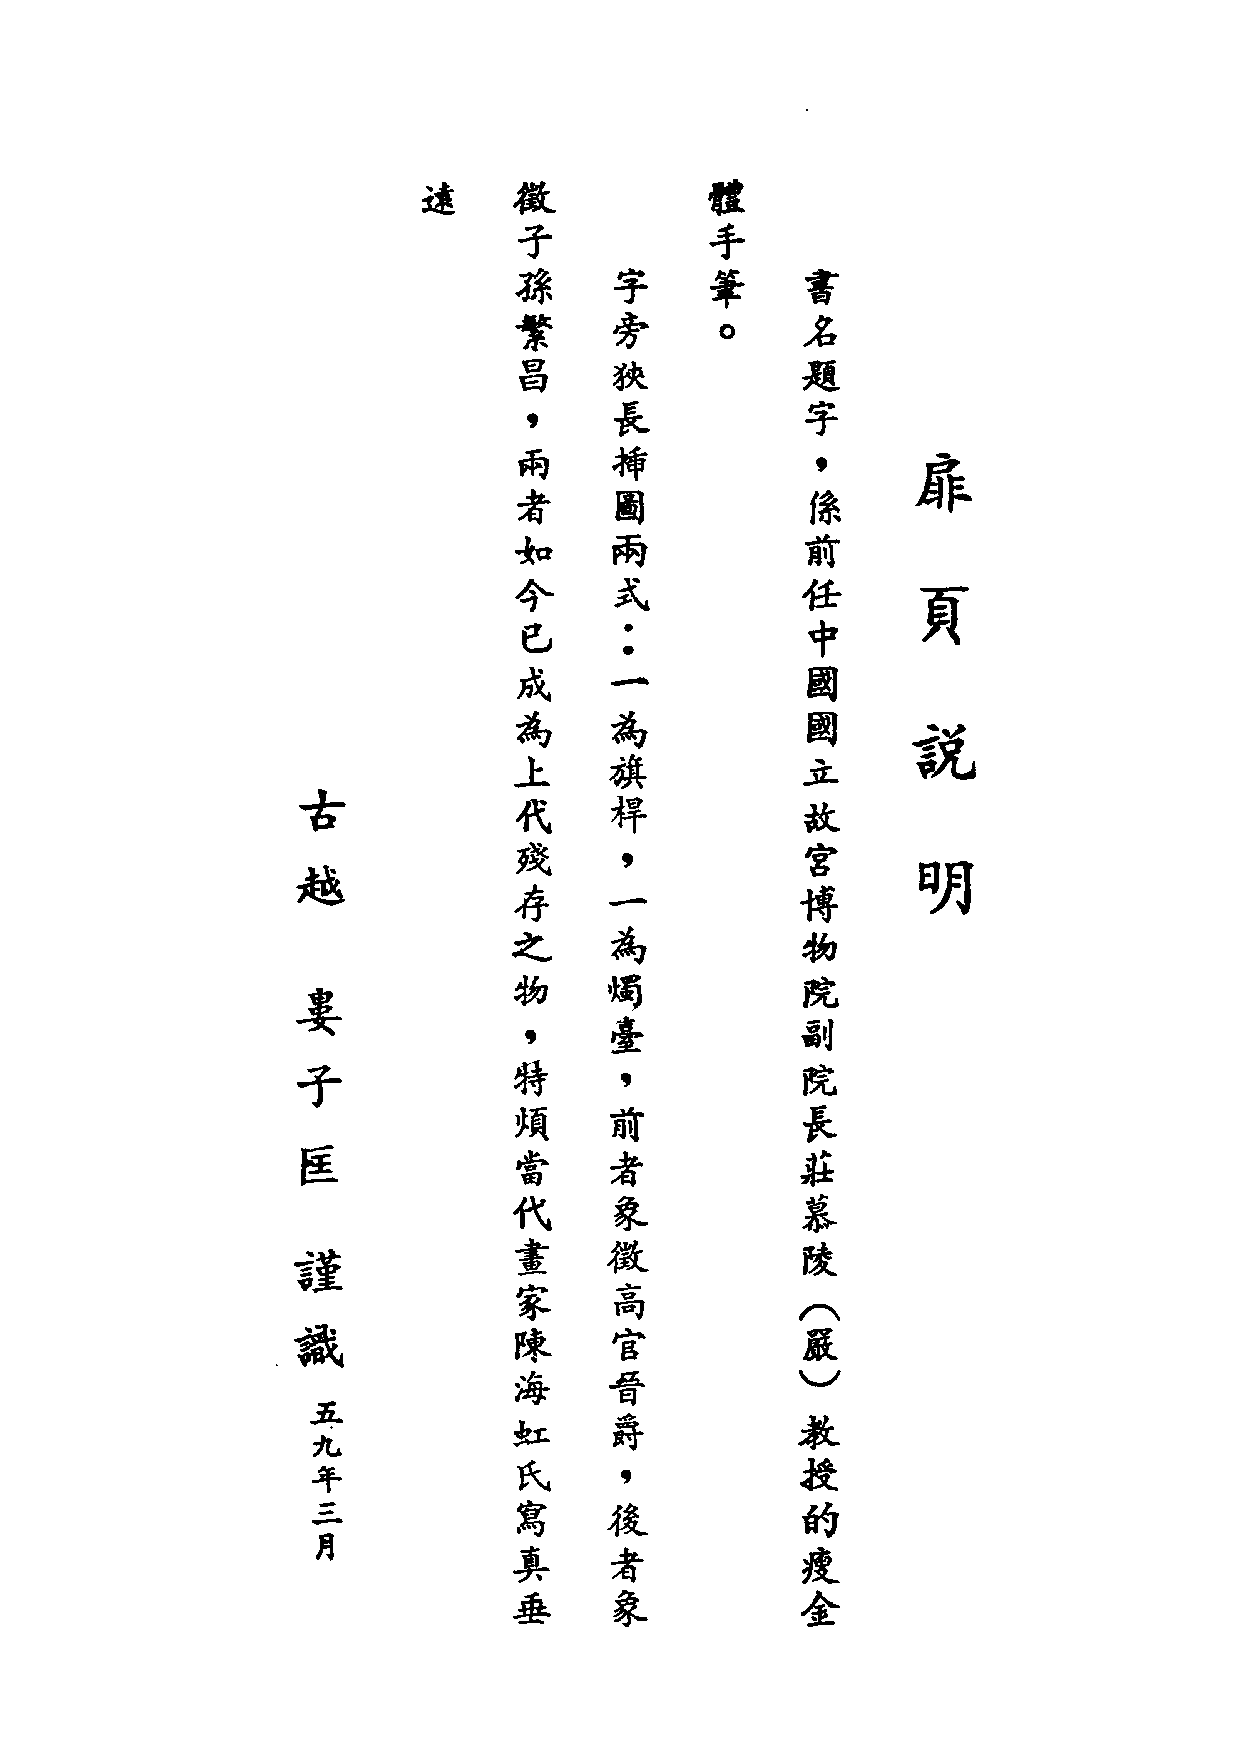 扉頁説明
書名題字，係前任中國國立故宮博物院副院長莊慕陵（嚴）教授的瘦金
體手筆。
字旁狹長揷圖兩式：一為旗桿，一為燭臺，前者象徵高官晉爵，後者象
徵子孫繁昌，兩者如今已成為上代殘存之物，特煩當代畫家陳海虹氏寫真垂
遠
古越 婁子匡 謹識 五九年三月